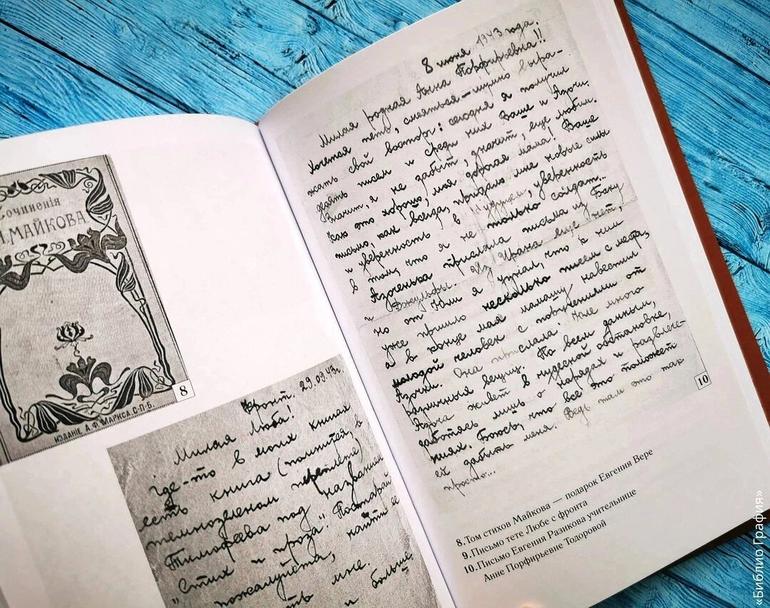 Сочиненія
МАЙКОВА
ИЗДАНІЕ А.Ф. МАРКСА. С-П-Б.
8
Фронт. 29.09.43.
Милая Люба!
где-то в моих книгах
есть книга (кажется в
темнозеленом переплете)
Тимофеева под названием
"Стих и проза". Постарай
пожалуйста, найти и
мне.
и больше
8 июня 1943 года.
Милая родная Анна Порфирьевна!!
Хочется петь, смеяться – шумно выра-
жать свой восторг: сегодня я получил
девять писем и среди них Ваше и Азочки.
Значит, я не забыт, значит, еще любим.
Как это хорошо, моя дорогая мама! Ваше
письмо, как всегда, придало мне новые силы
и уверенность в будущее, уверенность
в том, что я не только солдат...
Азочка прислала письма из Баку
и Джульфы. Из Ирана еще нет,
но от Юли я узнал, что к ним
уже пришло несколько писем с места,
а в конце мая мамашу навестил
молодой человек с поручениями от
Азочки. Она прислала
различных вещиц. По всем данным,
Азочка живет в чудесной обстановке,
заботясь лишь о нарядах и развлече-
ниях. Боюсь, что все это поможет
ей забыть меня. Ведь там это так
просто...
10
8. Том стихов Майкова — подарок Евгения Вере
9. Письмо тете Любе с фронта
10. Письмо Евгения Разикова учительнице
Анне Порфирьевне Тодоровой
«Библио Графия»